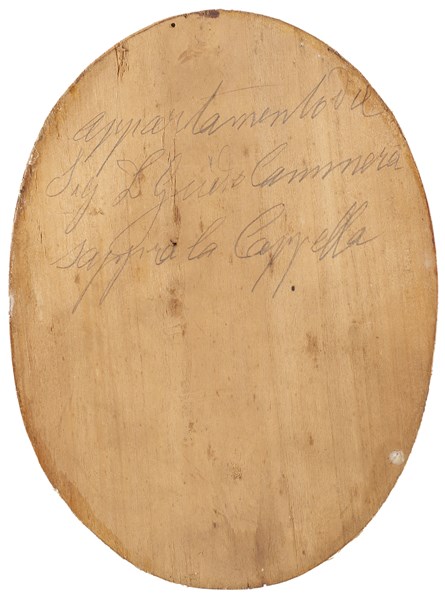 appartamento del
Sig D Guido Cammora
sappra la Cappella